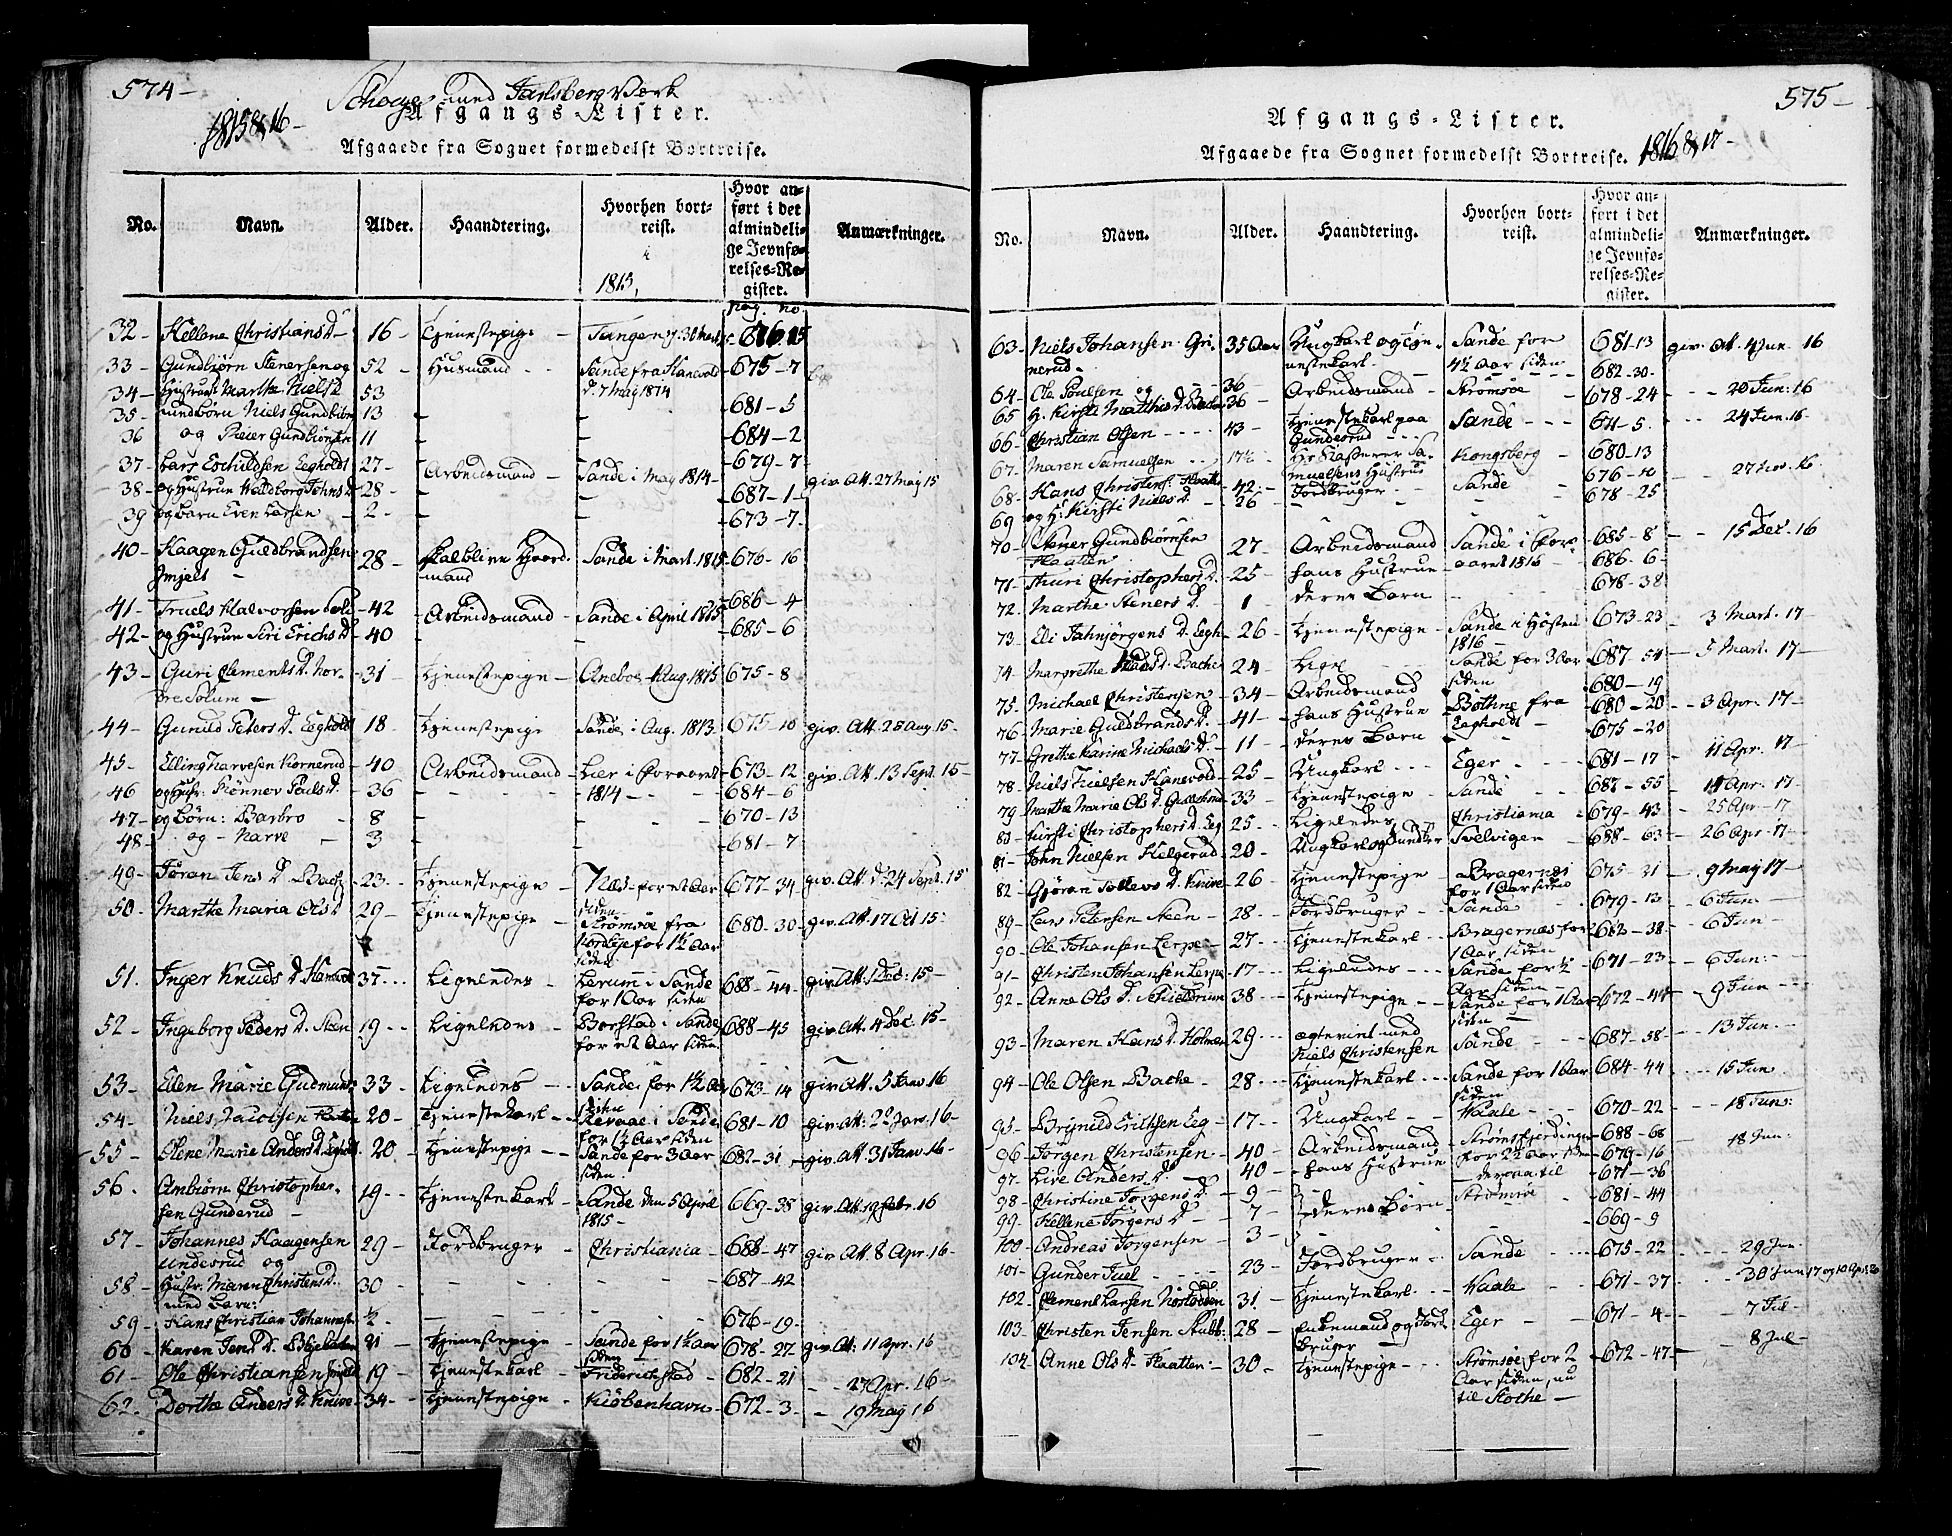 574-
Schoger med Jarlsberg Værk
Afgangs-Lister.
1815 & 16-
Afgaaede fra Sognet formedelst Bortreise.
No. Navn. Alder. Haandtering. Hvorhen bortreist. Hvor anført i det almindelige Jevnførelses-Register. Anmærkninger.
1815,
pag. no
32- Hellene Christians D- 16- Tjenestepige - Tangen 676-15
33- Gundbiørn Stenersen og 52- Husmand - Sande fra Hanevold 675-7
34- Hustrue Marthe Niels D 53 d. 7 May 1814 681-5
35- Niels Gundbiørn 13 684-2
36 og Peier Gundbiørnsen 11 679-7
37- Lars Eschildsen Eegholdt 27- Arbeidsmand - Sande i May 1814- giv. Att. 27 May 15
38- og Hustrue Waldborg Johns D 28- 687-1-
39 og Barn Even Larsen - 2- 673-7-
40- Haagen Guldbrandsen 28- Sande i Mart. 1815 676-16
41- Truels Halvorsen 42 - Arbeidsmand - Sande i April 1815 686-4
42- og Hustrue Siri Erichs D- 40 685-6
43- Guri Clements D. Nor- 31 - Tjenestepige - Aneboe Aug. 1815 675-8
dre Solum -
44- Gunild Peters D. Eegholdt 18- Tjenestepige Sande i Aug. 1813- 675-10 giv. Att. 28 Aug 15-
45- Elling Narvesen Kornerud - 40 Arbeidsmand - Lier i Foraaret 673-12 giv. Att. 13 Sept. 15-
46 og Hustr. Rønnov Pouls D. - 36 1814 - - - 684-6
47- og Børn: Barbro - 8 670-13
48- og - Narve - 3 681-7
49- Jøran Jens D. Bache 23- Tjenestepige - Næs for et Aar 677-34 giv. Att. d. 24 Sept. 15
siden
50- Marthe Maria Ols D 29- Tjenestepige - Strømsøe fra 680-30 giv. Att. 17 Oct 15:
for 1½ Aar
siden
51. Inger Knuds D. Hanevold 37... Ligeledes - Lerum i Sande 688-44- giv. Att. 1 Dec: 15-
for 1 Aar siden
52- Ingeborg Peders D. Steen 19-- Ligeledes - Borstad i Sande 688-45 giv. Att. 4 Dec. 15-
for et Aar siden.
53- Elen Marie Gudmunds 33- Ligeledes - Sande for 1½ Aar 673-14 giv. Att. 5 Janv 16
siden
54- Niels Jacobsen 20- Tjenestekarl - Revaae i Sande 681-10 giv. Att. 22 Janv. 16-
for 1½ Aar siden
55- Olene Marie Anders D. 20 - Tjenestepige - Sande for 3 Aar 682-31 giv. Att. 31 Janv 16-
siden.
56. Anbiørn Christopher- 19-- Tjenestekarl - Sande den 5 April 669-38 giv. Att. 19 Febr. 16
sen Gunderud - 1815-
57- Johannes Haagensen 29- Jordbruger - Christiania - 688-47 giv Att. 8 Apr. 16-
Undesrud og
58- Hustr. Maren Christens D. 30 687-42
med Barn:
59- Hans Christian Johannes. ½- 676-19.
60- Karen Jens D. 21 - Tjenestepige - Sande for 1½ Aar 678-27 giv. Att. 11 Apr. 16
siden
61- Ole Christiansen 19- Tjenestekarl - Friderichstad - 682-21 - - 27 Apr. 16-
62- Dorthe Anders D. Knive - 34- Tjenestepige - Kiöbenhavn 672-3- - 19 May 16
575-
Afgangs-Lister.
Afgaaede fra Sognet formedelst Bortreise. 1816 & 17-
No. Navn. Alder. Haandtering. Hvorhen bortreist. Hvor anført i det almindelige Jevnførelses-Register. Anmærkninger.
63- Niels Johansen Gri- 35 Aar Ungkarl og tje- Sande for 681-13 giv. Att. 4 Jun. 16
merud - nestekarl - 4½ Aar siden 682-30-
64- Ole Poulsen og - 36- Arbeidsmand - Strømsøe - 678-24 - - 20 Jun: 16
65 H. Kirsti Matthis D. Bache 36-
66- Christian Olsen - 43 - Tjenestekarl paa Sande - - 671-5. - - 24 Jun. 16-
Gunderud
67- Maren Samuelsen - 17½ Hr. Kasserer Sa- Kongsberg - 680-13
muelsens Hustrue
68- Hans Christens. 42- Jordbruger Sande 676-10 - - 27 Nov. 16
69- og H. Kirsti Niels D. - 26 - 678-25
70- Stener Gundbiørnsen 27- Arbeidsmand Sande i For- 685-8 - - 15 Dec. 16
Flaatten aaret 1816
71- Thuri Christophers D. - 25 - hans Hustrue 686-6-
72- Marthe Steners D. - 1 - deres Barn 678-38
73- Eli Jahnjörgens D. Eegh - 26- Tjenestepige - Sande i Høsten 673-23 - 3 Mart. 17-
1816-
74- Margrethe D. Bache 24- Lige Sande for 3 Aar 687-54 - 5 Mart. 17-
siden
75- Michael Christensen - 34- Arbeidsmand Böthne fra 680-19
76- Marie Guldbrands D. - 41- hans Hustrue Eegholdt - 680-20 - 3 Apr. 17-
77- Grethe Karine Michaels D. - 11 - deres Barn 675-20
78- Niels Nielsen Hanevold - 25- Ungkarl - - Eger - - 681-17 - 11 Apr. 17
79- Marthe Marie Ols D. 33- Tjenestepige - Sande 687-55 - 14 Apr. 17-
80- Kirsti Christophers D. Eeg 25- Ligeledes Christiania 679-43 - 25 Apr - 17
81- John Nielsen Helgerud - 20- Ungkarl og Svelvigen - 688-63 - 26 Apr. 17-
82- Gjöran Tollevs D. Knive - 26 - Tjenestepige - Bragernæs 675-31 - 9 May 17-
for 1 Aar siden
89- Lars Petersen Steen - 28- Jordbruger - Sande - 679-13 - 6 Jun -
90- Ole Johansen Lerpe - 27- Tjenestekarl - Bragernæs for 682-38 - 6 Jun -
1 Aar siden
91- Christen Johansen Lerpe - 17- Ligeledes - Sande for ½ 671-23 - 6 Jun: -
Aar siden
92- Anne Ols D. 38 - Tjenestepige - Sande for 1 Aar 672-44 - 9 Jun -
siden
93- Maren Hans D. Holmen 29 - ægteviet med Sande - - 687-58 - 13 Jun. -
Niels Christensen
94- Ole Olsen Bache - 28- Tjenestekarl - Sande for 1 Aar 684-44 - 15 Jun
siden
95- Brynild Erichsen Eeg - 17 - Ungkarl - - Waale - - 670-22 - 18 Jun:
96- Jörgen Christensen - 40 - Arbeidsmand - Strømsfjerdingen 688-68 - 18 Jun:
for 2½ Aar siden
97- Live Anders D. - 40 - hans Hustrue - derpaa til 679-16
98- Christine Jörgens D. - 9 - Strömsöe 671-36
99- Hellene Jörgens D - 7 - deres Børn - 681-44
100- Andreas Jörgensen - 3 - 669-9
101- Gunder Juel - 23 - Jordbruger - Sande - - 675-22 - - 29 Jun
102- Clement Larsen 31 - Tjenestekarl - Waale - - 671-37 - - 30 Jun 17 og
103- Christen Jensen Stubb: - 28 - Enkemand og Jord- Eger - - 671-4- - 7 Jul-
bruger -
104- Anne Ols D. Flaatten: - 30- Tjenestepige - Strömsöe for 2 672-47- 8 Jul-
Aar siden, nu
til Skothe -